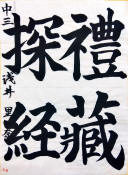 禮藏
探経
中三 浅井 里